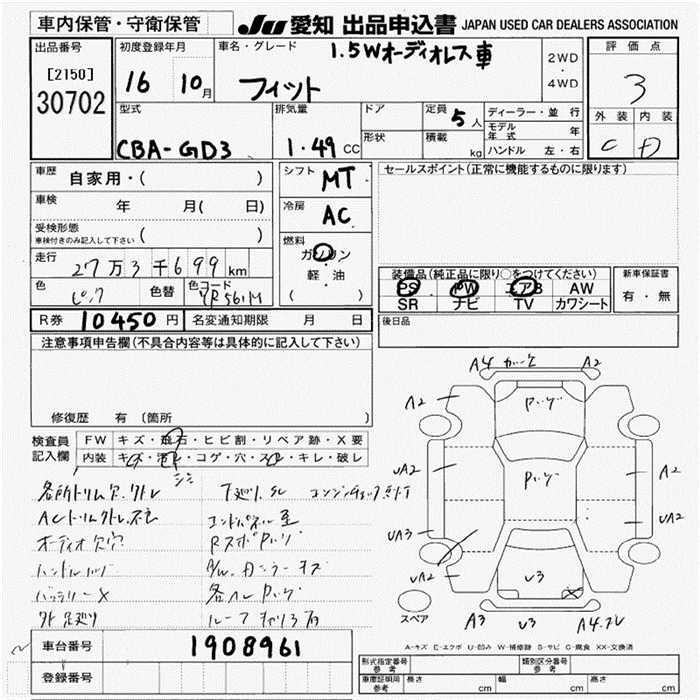 車内保管・守衛保管
JU 愛知 出品申込書 JAPAN USED CAR DEALERS ASSOCIATION
出品番号
[2150]
30702
初度登録年月
16 10月
車名・グレード
1.5Wオーディオレス車
フィット
2WD
・
4WD
評価点
3
外装 内装
C D
型式
CBA-GD3
排気量
1.49 CC
ドア
形状
定員 5人
積載 kg
ディーラー・並行
モデル年式 年
ハンドル 左・右
車歴 自家用・( )
車検 年 月( 日)
受検形態
車検付きのみ記入して下さい ( )
走行 27万3千699km
色 ピンク 色替 色コード YR561M
シフト MT
冷房 AC
燃料
ガソリン
・
軽・油
( )
セールスポイント(正常に機能するものに限ります)
装備品(純正品に限り○をつけてください)
PS PW エアB AW
SR ナビ TV カワシート
新車保証書
有・無
後日品
R券 10450円 名変通知期限 月 日
注意事項申告欄(不具合内容等は具体的に記入して下さい)
修復歴 有 (箇所
検査員記入欄
FW キズ・飛石・ヒビ割・リペア跡・X要
内装 キズ・汚れ・コゲ・穴・スレ・キレ・破レ
シミ
各所トリム欠.外レ
下廻りサビ エンジンチェック点灯
ACトリム外レ.不良
エンドパネル歪
オーディオ欠品
バッテリーX
A4 A2
A2 A2
UA2 A2
UA2
UA3
UA2
U3
スペア
A3 U3
A-キズ E-エクボ U-凹み W-補修跡 S-サビ C-腐食 XX-交換済
車台番号 1908961
登録番号
型式指定番号 参考
類別区分番号 参考
車庫証明用 参考 長さ cm 幅 cm 高さ cm